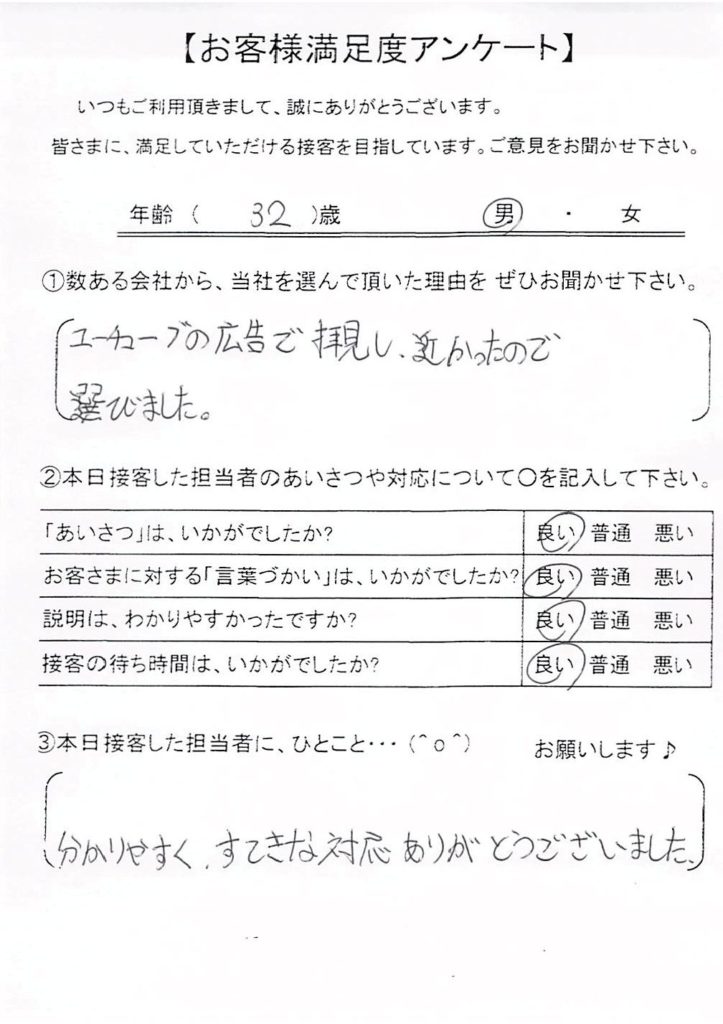 【お客様満足度アンケート】
いつもご利用頂きまして、誠にありがとうございます。
皆さまに、満足していただける接客を目指しています。ご意見をお聞かせ下さい。
年齢（ 32 ）歳 男 ・ 女
①数ある会社から、当社を選んで頂いた理由を ぜひお聞かせ下さい。
ユーチューブの広告で拝見し、近かったので
選びました。
②本日接客した担当者のあいさつや対応について〇を記入して下さい。
「あいさつ」は、いかがでしたか? 良い 普通 悪い
お客さまに対する「言葉づかい」は、いかがでしたか? 良い 普通 悪い
説明は、わかりやすかったですか? 良い 普通 悪い
接客の待ち時間は、いかがでしたか? 良い 普通 悪い
③本日接客した担当者に、ひとこと・・・（＾ｏ＾） お願いします♪
分かりやすく、すてきな対応ありがとうございました。